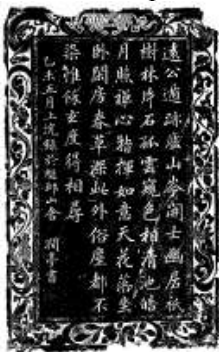 遠公遁跡廬山岑開士幽居祇
樹林片石孤雲窺色相清池皓
月照禪心指揮如意天花落坐
臥閒房春草深此外俗塵都不
染惟餘玄度得相尋
乙未五月上浣錄於山舍 潤亭書